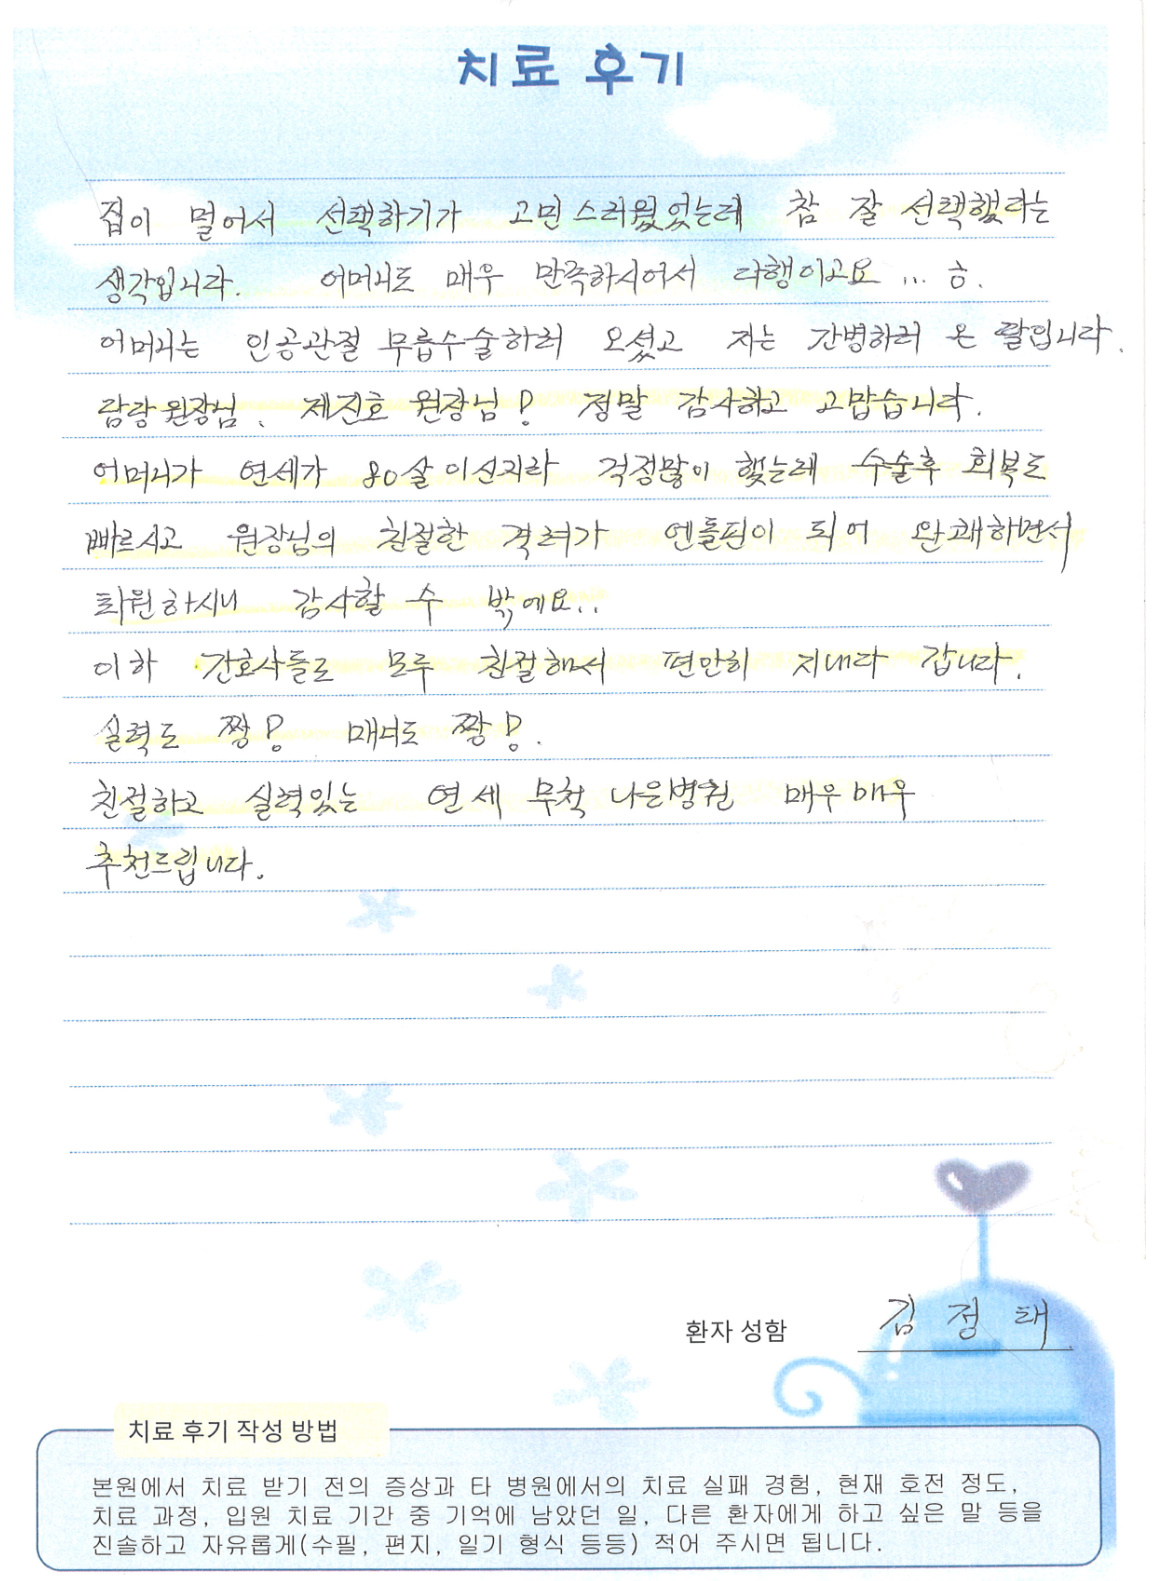 치료 후기
집이 멀어서 선택하기가 고민스러웠었는데 참 잘 선택했다는
생각입니다. 어머니도 매우 만족하시어서 다행이고요 ... ㅎ.
어머니는 인공관절 무릎수술하러 오셨고 저는 간병하러 온 딸입니다.
원장님, 제진호 원장님! 정말 감사하고 고맙습니다.
어머니가 연세가 80살이신지라 걱정많이 했는데 수술후 회복도
빠르시고 원장님의 친절한 격려가 엔돌핀이 되어 완쾌하면서
퇴원하시니 감사할 수 밖에요..
이하 간호사들도 모두 친절해서 편안히 지내다 갑니다.
실력도 짱! 매너도 짱!.
친절하고 실력있는 연세 무척 나은병원 매우매우
추천드립니다.
환자 성함 김 정 태
치료 후기 작성 방법
본원에서 치료 받기 전의 증상과 타 병원에서의 치료 실패 경험, 현재 호전 정도,
치료 과정, 입원 치료 기간 중 기억에 남았던 일, 다른 환자에게 하고 싶은 말 등을
진솔하고 자유롭게(수필, 편지, 일기 형식 등등) 적어 주시면 됩니다.